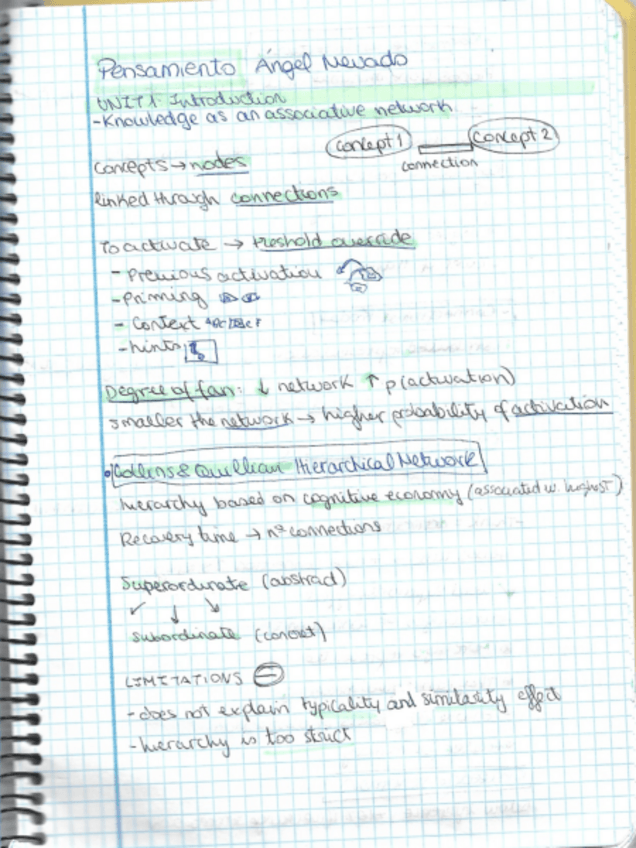 Pensamiento Ángel Nevado
UNIT 1. Introduction
-Knowledge as an associative network
concept 1 concept 2
connection
concepts → nodes
linked through connections
To activate → treshold override
- Previous activation
- Priming
- Context
- hints
Degree of fan: ↓ network ↑ p(activation)
smaller the network → higher probability of activation
• Collins & Quillian Hierarchical Network
hierarchy based on cognitive economy (associated w. highest)
Recovery time → nº connections
Superordinate (abstract)
↙ ↓ ↘
Subordinate (concret)
LIMITATIONS
-does not explain typicality and similarity effect
-hierarchy is too strict